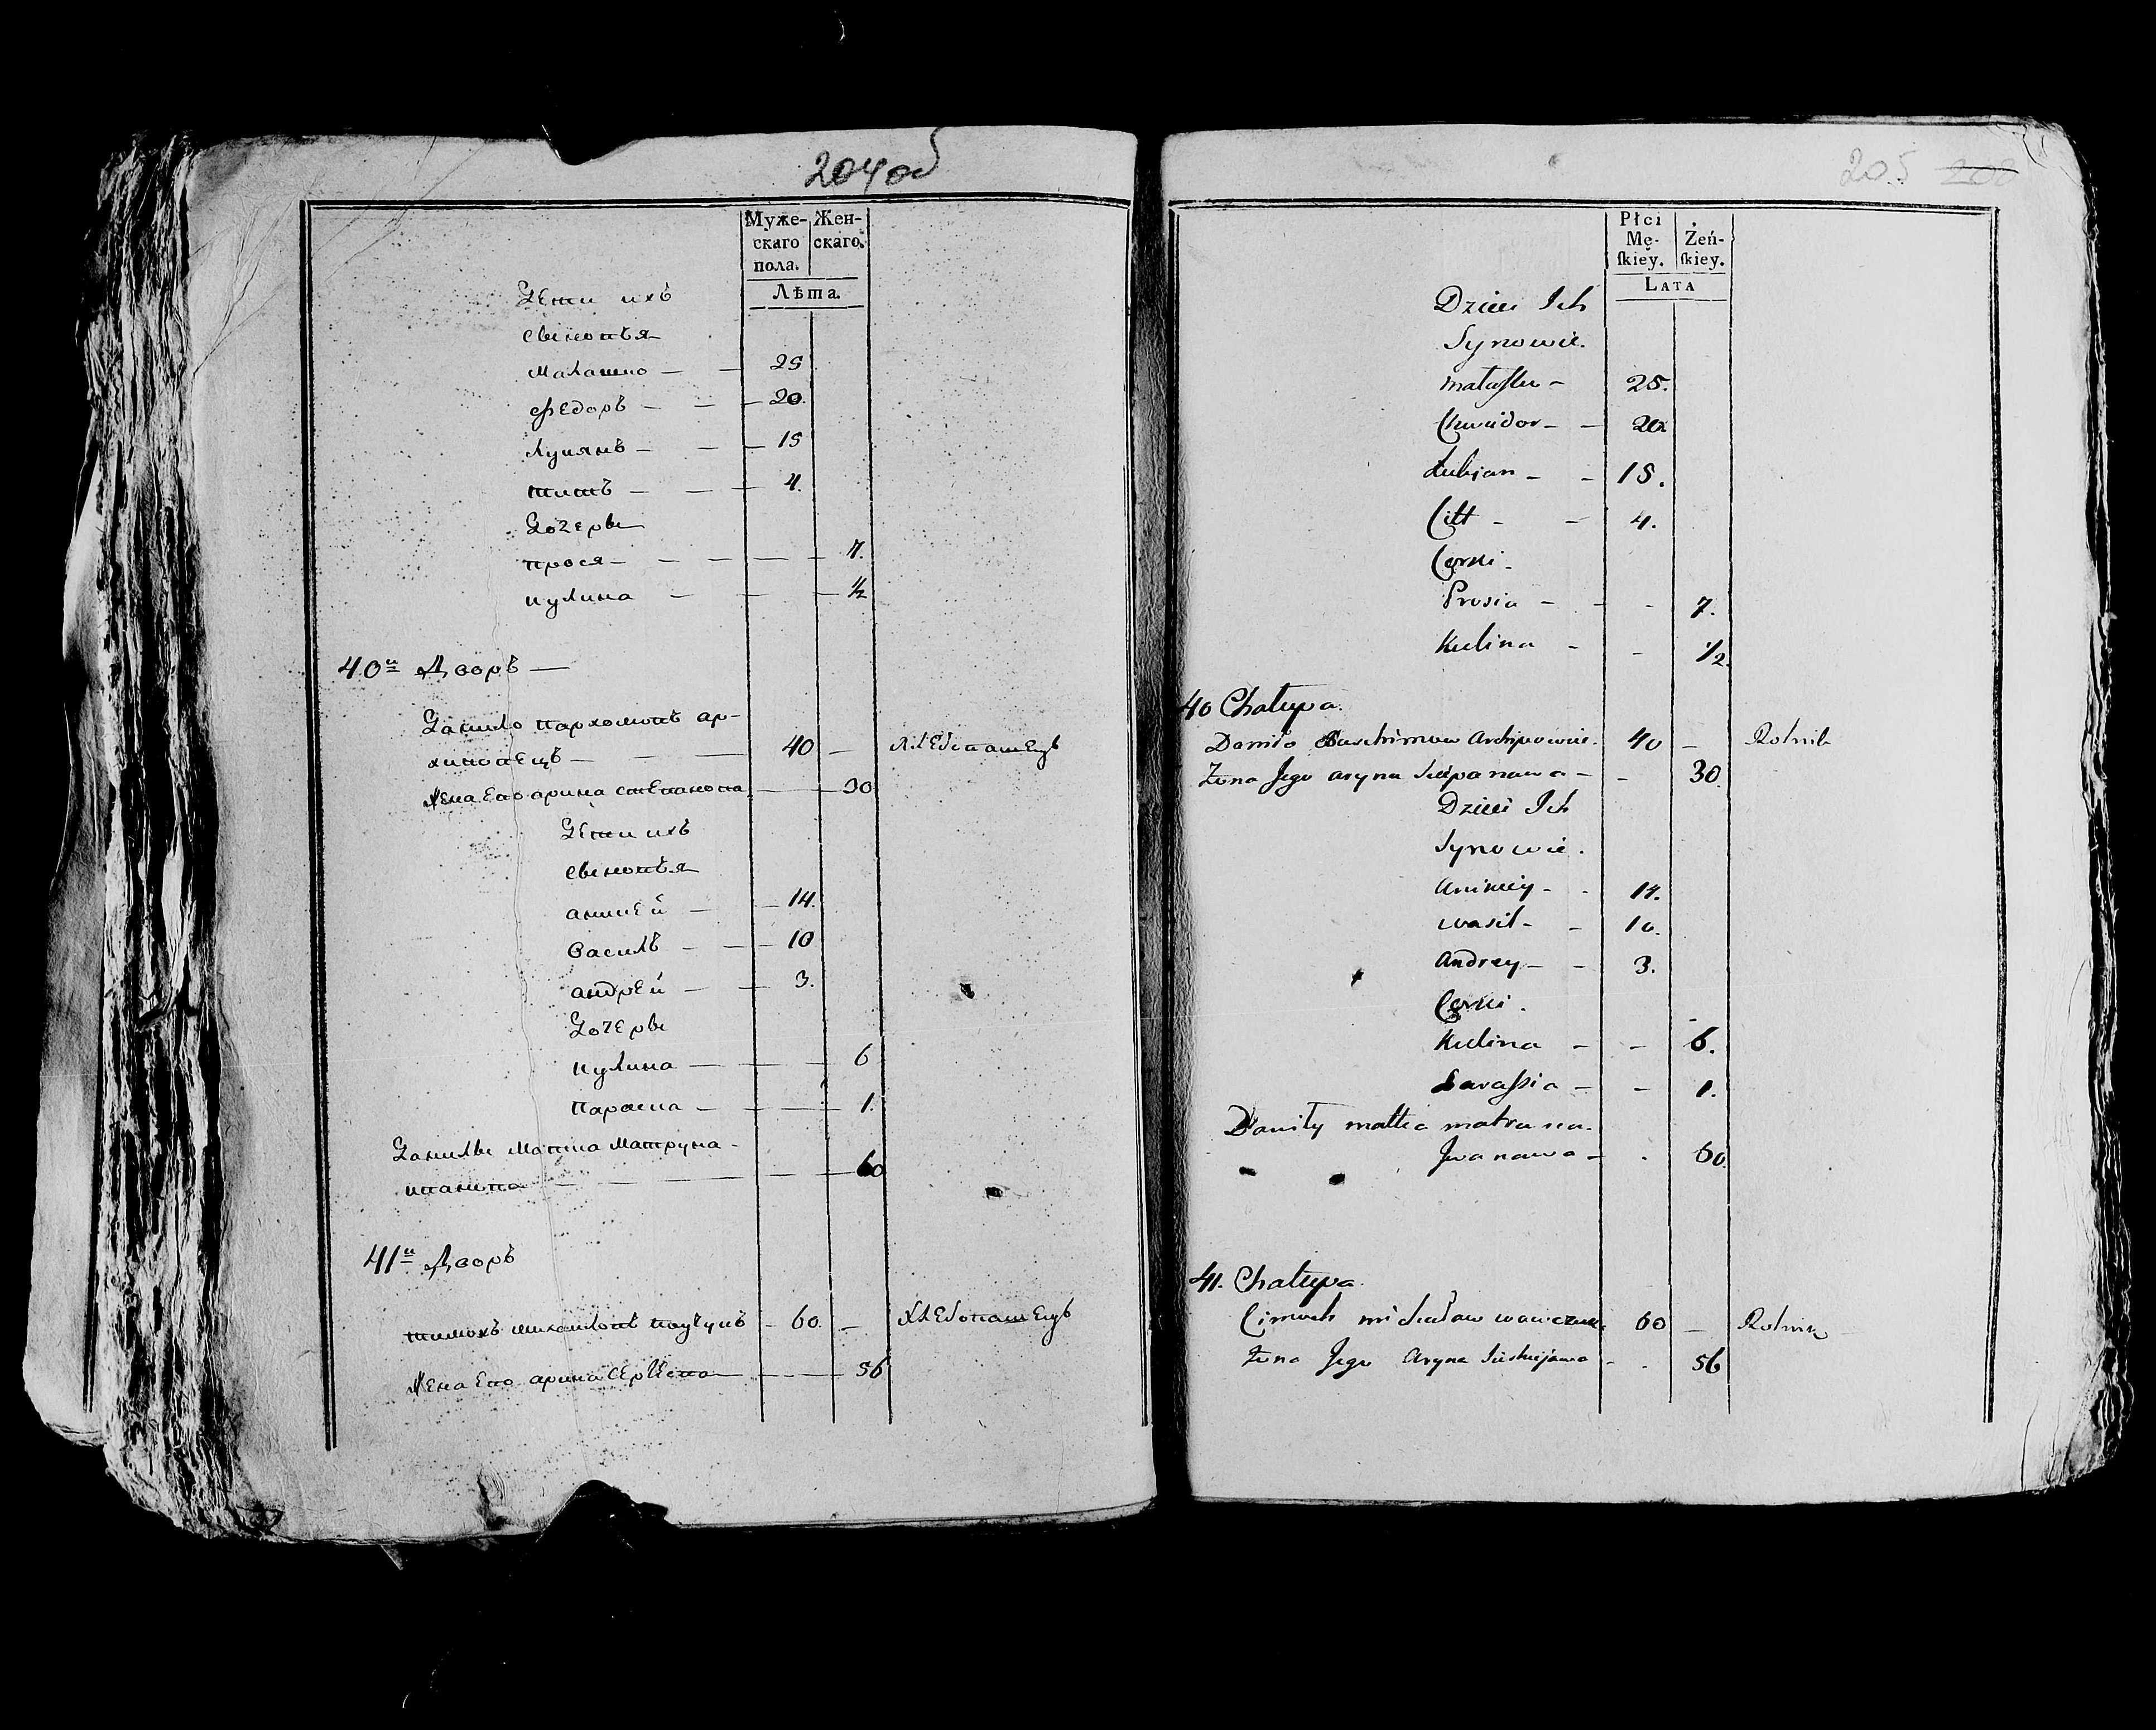 204об
Муже-
скаго
пола.
Жен-
скаго.
Лѣта.
Дети ихъ
сыновѣя
Малашко — — 25
Федоръ — — — 20.
Лукянъ — — — 15
титъ — — — 4.
Дочеры
прося — — — — — 7.
кулина — — — ½
40й Дворъ —
Данило пархомовъ ар-
хиповецъ — — — 40 — хлебопашецъ
Жена Его арина степанова — — 30
Дети ихъ
сыновѣя
аникей — — 14.
Василь — — — 10
андрей — — 3.
Дочеры
кулина — — — 6
параска — — — — 1.
Данилы матка Матруна -
иванова — — — — — 60
41й Дворъ
тимохъ михайловъ - 60. — хлебопашецъ
Жена Его арина — — — 56
205 208
Płci
Mę-
skiey.
Żeń-
skiey.
LATA
Dzieci Ich
Synowie.
- 25.
Chwiedor - - 20
Łukjan - - 15.
Citt - - 4.
Corki.
Prosia - - - 7.
Kulina - - ½.
40 Chałupa.
Daniło Archipowiec. 40 — Rolnik
Żona Jego aryna Sciepanawa - - 30.
Dzieci Ich
Synowie.
Anikiey - - 14.
wasil - - 10.
Andrey - - 3.
Corki.
Kulina - - 6.
- - 1.
Daniły matka matruna.
Jwanawa - . 60.
41. Chałupa.
Cimoch 60 — Rolnik
Żona Jego Aryna - . 56